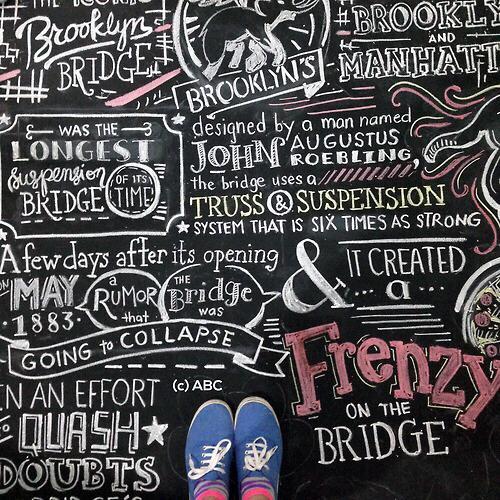 THE ICONIC
Brooklyn
BRIDGE
BROOKLYN'S
BROOKLYN
AND
MANHATT
WAS THE
LONGEST
Suspension
BRIDGE
OF ITS
TIME
designed by a man named
JOHN AUGUSTUS
ROEBLING,
the bridge uses a
TRUSS & SUSPENSION
SYSTEM THAT IS SIX TIMES AS STRONG
A few days after its opening
ON
MAY
1883.
a
RUMOR
that
THE
Bridge
was
GOING to COLLAPSE
& IT CREATED
a
Frenzy
ON THE
BRIDGE
IN AN EFFORT
TO
QUASH
DOUBTS
(c) ABC